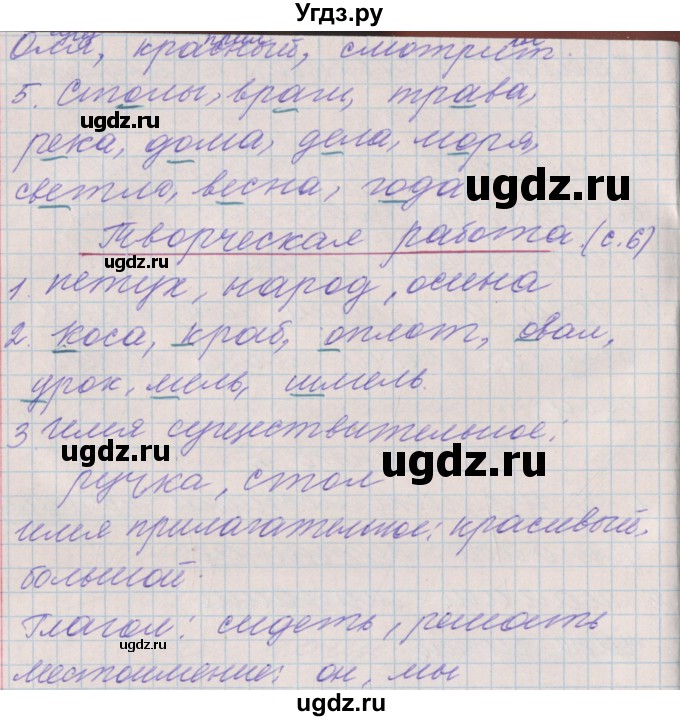 Угдз.ру
сущ прил гл
Оля, красный, смотрит.
5. Столы, враги, трава,
ugdz.ru
река, дома, дела, моря,
светло, весна, года
ugdz.ru
Творческая работа. (с. 6)
ugdz.ru
1. петух, народ, осина
2. коса, краб, оплот, овал,
ugdz.ru
урок, мель, шмель.
3 Имя существительное:
ugdz.ru
ugdz.ru
ручка, стол
имя прилагательное: красивый,
большой.
Глагол: сидеть, решать
ugdz.ru
местоимение: он, мы
ugdz.ru